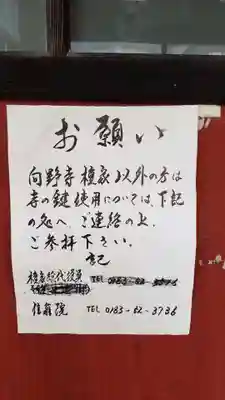 お願い
向野寺檀家以外の方は
寺の鍵使用については、下記
の処へ、ご連絡の上、
ご参拝下さい。
記
檀家総代役員 TEL
信翁院 TEL 0183-62-3736